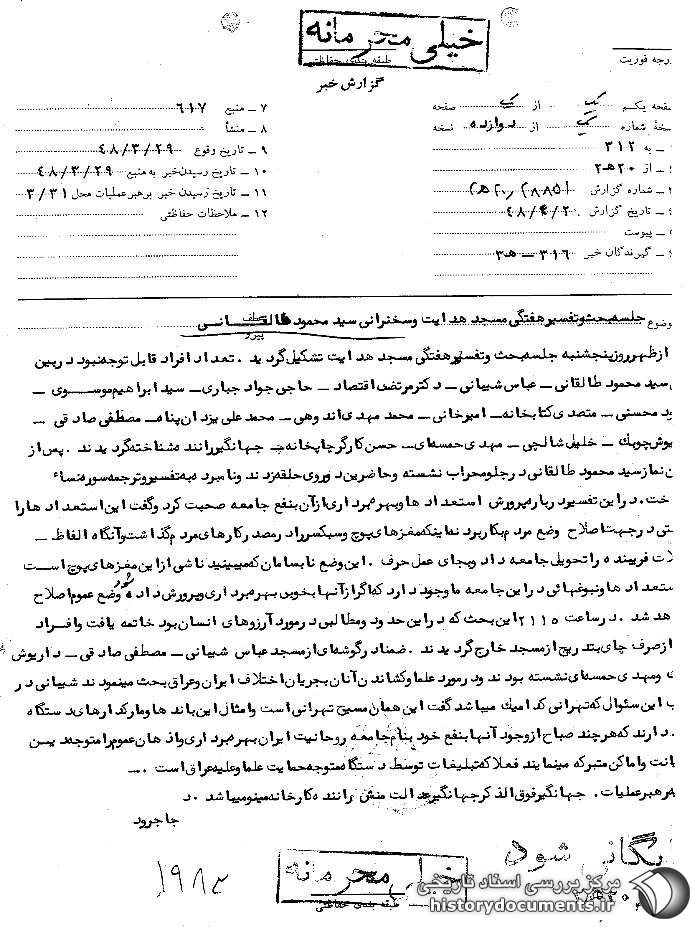 خیلی محرمانه
طبقه بندی حفاظتی
گزارش خبر
رجه فوریت
فحه یکم یک از یک صفحه
خهٔ شماره یک از دوازده نسخه
ـ به ۳۱۲
ـ از ۲۰ هـ ۲
ـ شماره گزارش ۲۸۸۵۱ / ۲۰ هـ ۲
ـ تاریخ گزارش ۴۸/۴/۲
ـ پیوست
ـ گیرندگان خبر ۳۱۶ ـ هـ ۳
۷ ـ منبع ۶۱۷
۸ ـ منشأ
۹ ـ تاریخ وقوع ۴۸/۳/۲۹
۱۰ ـ تاریخ رسیدن خبر به منبع ۴۸/۳/۲۹
۱۱ ـ تاریخ رسیدن خبر برهبر عملیات محل ۳/۳۱
۱۲ ـ ملاحظات حفاظتی
وضوع جلسه بحث و تفسیر هفتگی مسجد هدایت و سخنرانی سید محمود طالقانی
عطف
پیرو
ازظهر روز پنجشنبه جلسه بحث و تفسیر هفتگی مسجد هدایت تشکیل گردید. تعداد افراد قابل توجه نبود در بین
سید محمود طالقانی ـ عباس شیبانی ـ دکتر مرتضی اقتصاد ـ حاجی جواد جباری ـ سید ابراهیم موسوی ـ
ود محسنی ـ متصدی کتابخانه ـ امیرخانی ـ محمد مهدی اندوهی ـ محمد علی یزدان پناه ـ مصطفی صادقی ـ
یوش چوبک ـ خلیل شالچی ـ مهدی حمسه‌ای ـ حسن کارگر چاپخانه ـ جهانگیر راننده شناخته گردیدند. پس از
ن نماز سید محمود طالقانی در جلو محراب نشسته و حاضرین در روی حلقه زدند و نامبرده به تفسیر و ترجمه سوره نساء
خت. در این تفسیر درباره پرورش استعدادها و بهره برداری از آن بنفع جامعه صحبت کرد و گفت این استعدادها را
تی در جهت اصلاح وضع مردم بکار برد نه اینکه مغزهای پوچ و سبکسر را در مصدر کارهای مردم گذاشت و آنگاه الفاظ ـ
لات فریبنده را تحویل جامعه داد و بجای عمل حرف. این وضع نابسامان که میبینید ناشی از این مغزهای پوچ است
ستعدادها و نبوغهائی در این جامعه ما وجود دارد که اگر از آنها بخوبی بهره برداری و پرورش داده شود وضع عموم اصلاح
هد شد. در ساعت ۲۱۱۵ این بحث که در این حدود و مطالبی در مورد آرزوهای انسان بود خاتمه یافت و افراد
از صرف چای بتدریج از مسجد خارج گردیدند. ضمنا در گوشه‌ای از مسجد عباس شیبانی ـ مصطفی صادقی ـ داریوش
و مهدی حمسه‌ای نشسته بودند و در مورد علما و کشاندن آنان بجریان اختلاف ایران و عراق بحث مینمودند شیبانی در
ب این سئوال که تهرانی کدامیک میباشد گفت این همان مسیح تهرانی است و امثال این باندها و مارکدارهای دستگاه
. دارند که هر چند صباح از وجود آنها بنفع خود بنام جامعه روحانیت ایران بهره برداری و اذهان عموم را متوجه دیـن
یانت و اماکن متبرکه مینمایند فعلا که تبلیغات توسط دستگاه متوجه حمایت علما و علیه عراق است. ـ
رهبر عملیات. جهانگیر فوق الذکر جهانگیر عدالت منش راننده کارخانه مینو میباشد. د
جاجرود
یگانی شود
خیلی محرمانه
طبقه بندی حفاظتی
مرکز بررسی اسناد تاریخی
historydocuments.ir